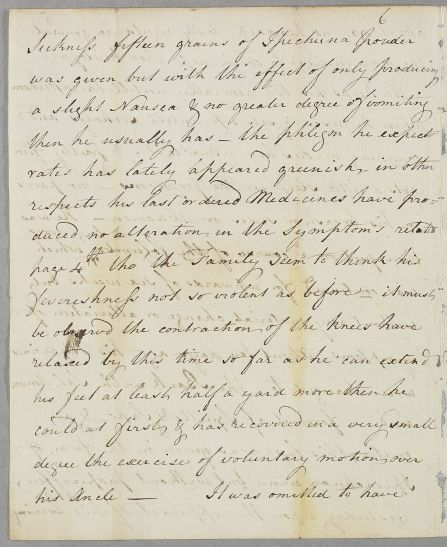 6
Sickness fifteen grains of Ipecuna powder
was given but with the effect of only producing
a slight Nausea & no greater degree of vomiting
then he usually has – the phlegm he expect
rates has lately appeared greenish, in other
respects his last ordered Medecines have pro-
duced no alteration in the Symptoms related
page 4th tho the Family seem to think his
feverishness not so violent as before – it must
be observd the contraction of the knees have
relaxed by this time so far as he can extend
his feet at least half a yard more then he
could at first, & has recovered in a very small
degree the exercise of voluntary motion over
his Ancle — It was omitted to have